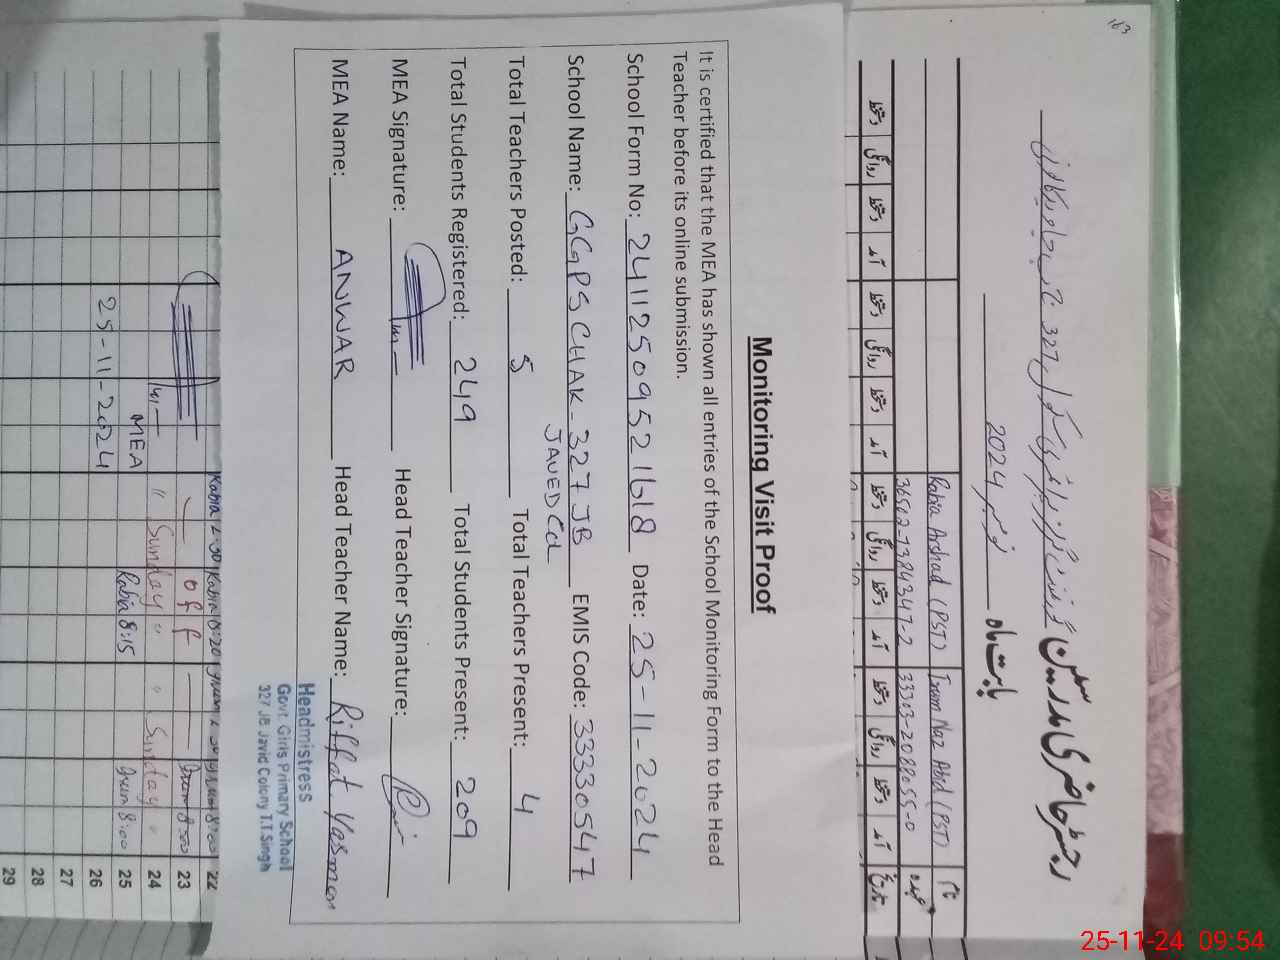 163
گورنمنٹ گرلز پرائمری سکول 327 ج ب جاوید کالونی
رجسٹر حاضری مدرسین
بابت ماہ نومبر 2024
نام
Irum Naz Abid (PST)
Rabia Arshad (PST)
عہدہ
33303-2088055-0
36502-7384347-2
تاریخ آمد دستخط روانگی دستخط آمد دستخط روانگی دستخط آمد دستخط روانگی دستخط آمد دستخط روانگی دستخط
Monitoring Visit Proof
It is certified that the MEA has shown all entries of the School Monitoring Form to the Head
Teacher before its online submission.
School Form No: 24112509521618 Date: 25-11-2024
School Name: GGPS CHAK-327 JB EMIS Code: 33330547
JAVED Col
Total Teachers Posted: 5 Total Teachers Present: 4
Total Students Registered: 249 Total Students Present: 209
MEA Signature: Head Teacher Signature:
MEA Name: ANWAR Head Teacher Name: Riffat Yasmeen
Headmistress
Govt. Girls Primary School
327 JB Javid Colony T.T.Singh
Rabia 12:30 Rabia 8:20 8:00 22
off Irum 8:00 23
" Sunday " " Sunday " 24
MEA Rabia 8:15 Irum 8:00 25
25-11-2024 26
27
28
29
25-11-24 09:54